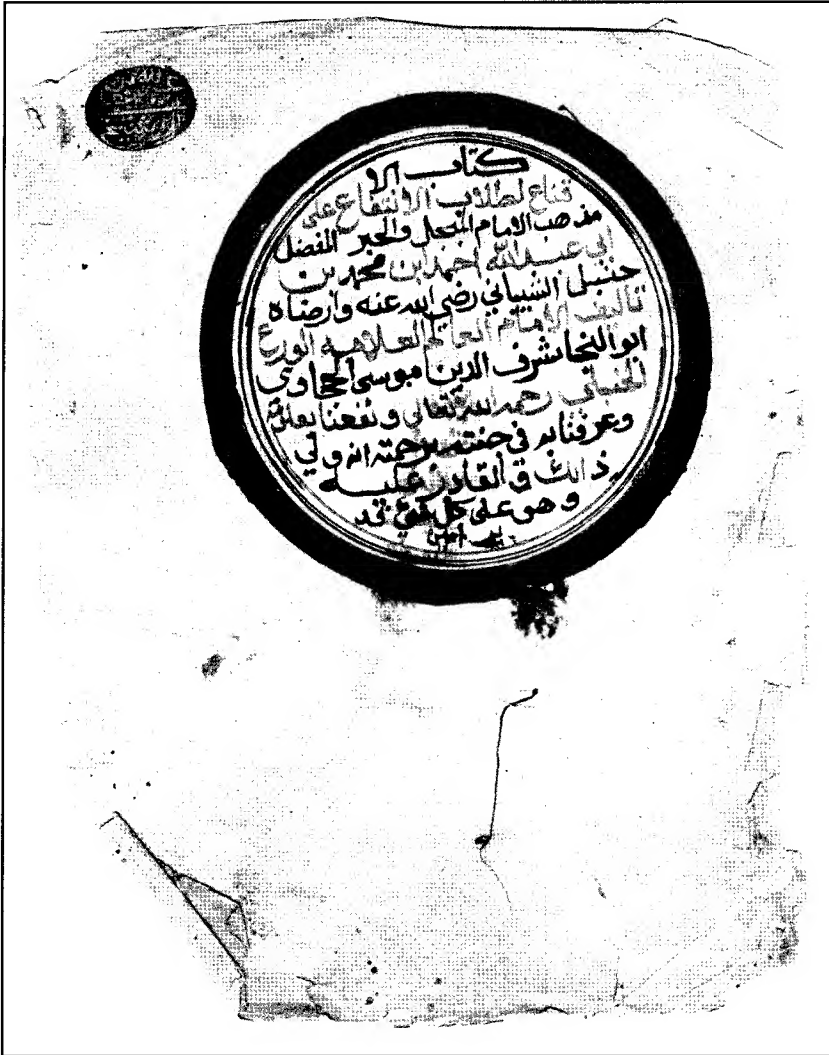 كتاب الا
قناع لطلاب الانتفاع على
مذهب الامام المبجل والحبر المفضل
ابي عبد الله احمد ابن محمد بن
حنبل الشيباني رضي الله عنه وارضاه
تاليف الامام العالم العلامه الورع
ابو النجا شرف الدين موسى الحجاوي
الحنبلي رحمه الله تعالى ونفعنا بعلومه
وعرفنا به في جنته برحمته انه ولي
ذالك والقادر عليه
وهو على كل شيء قد
ير امين